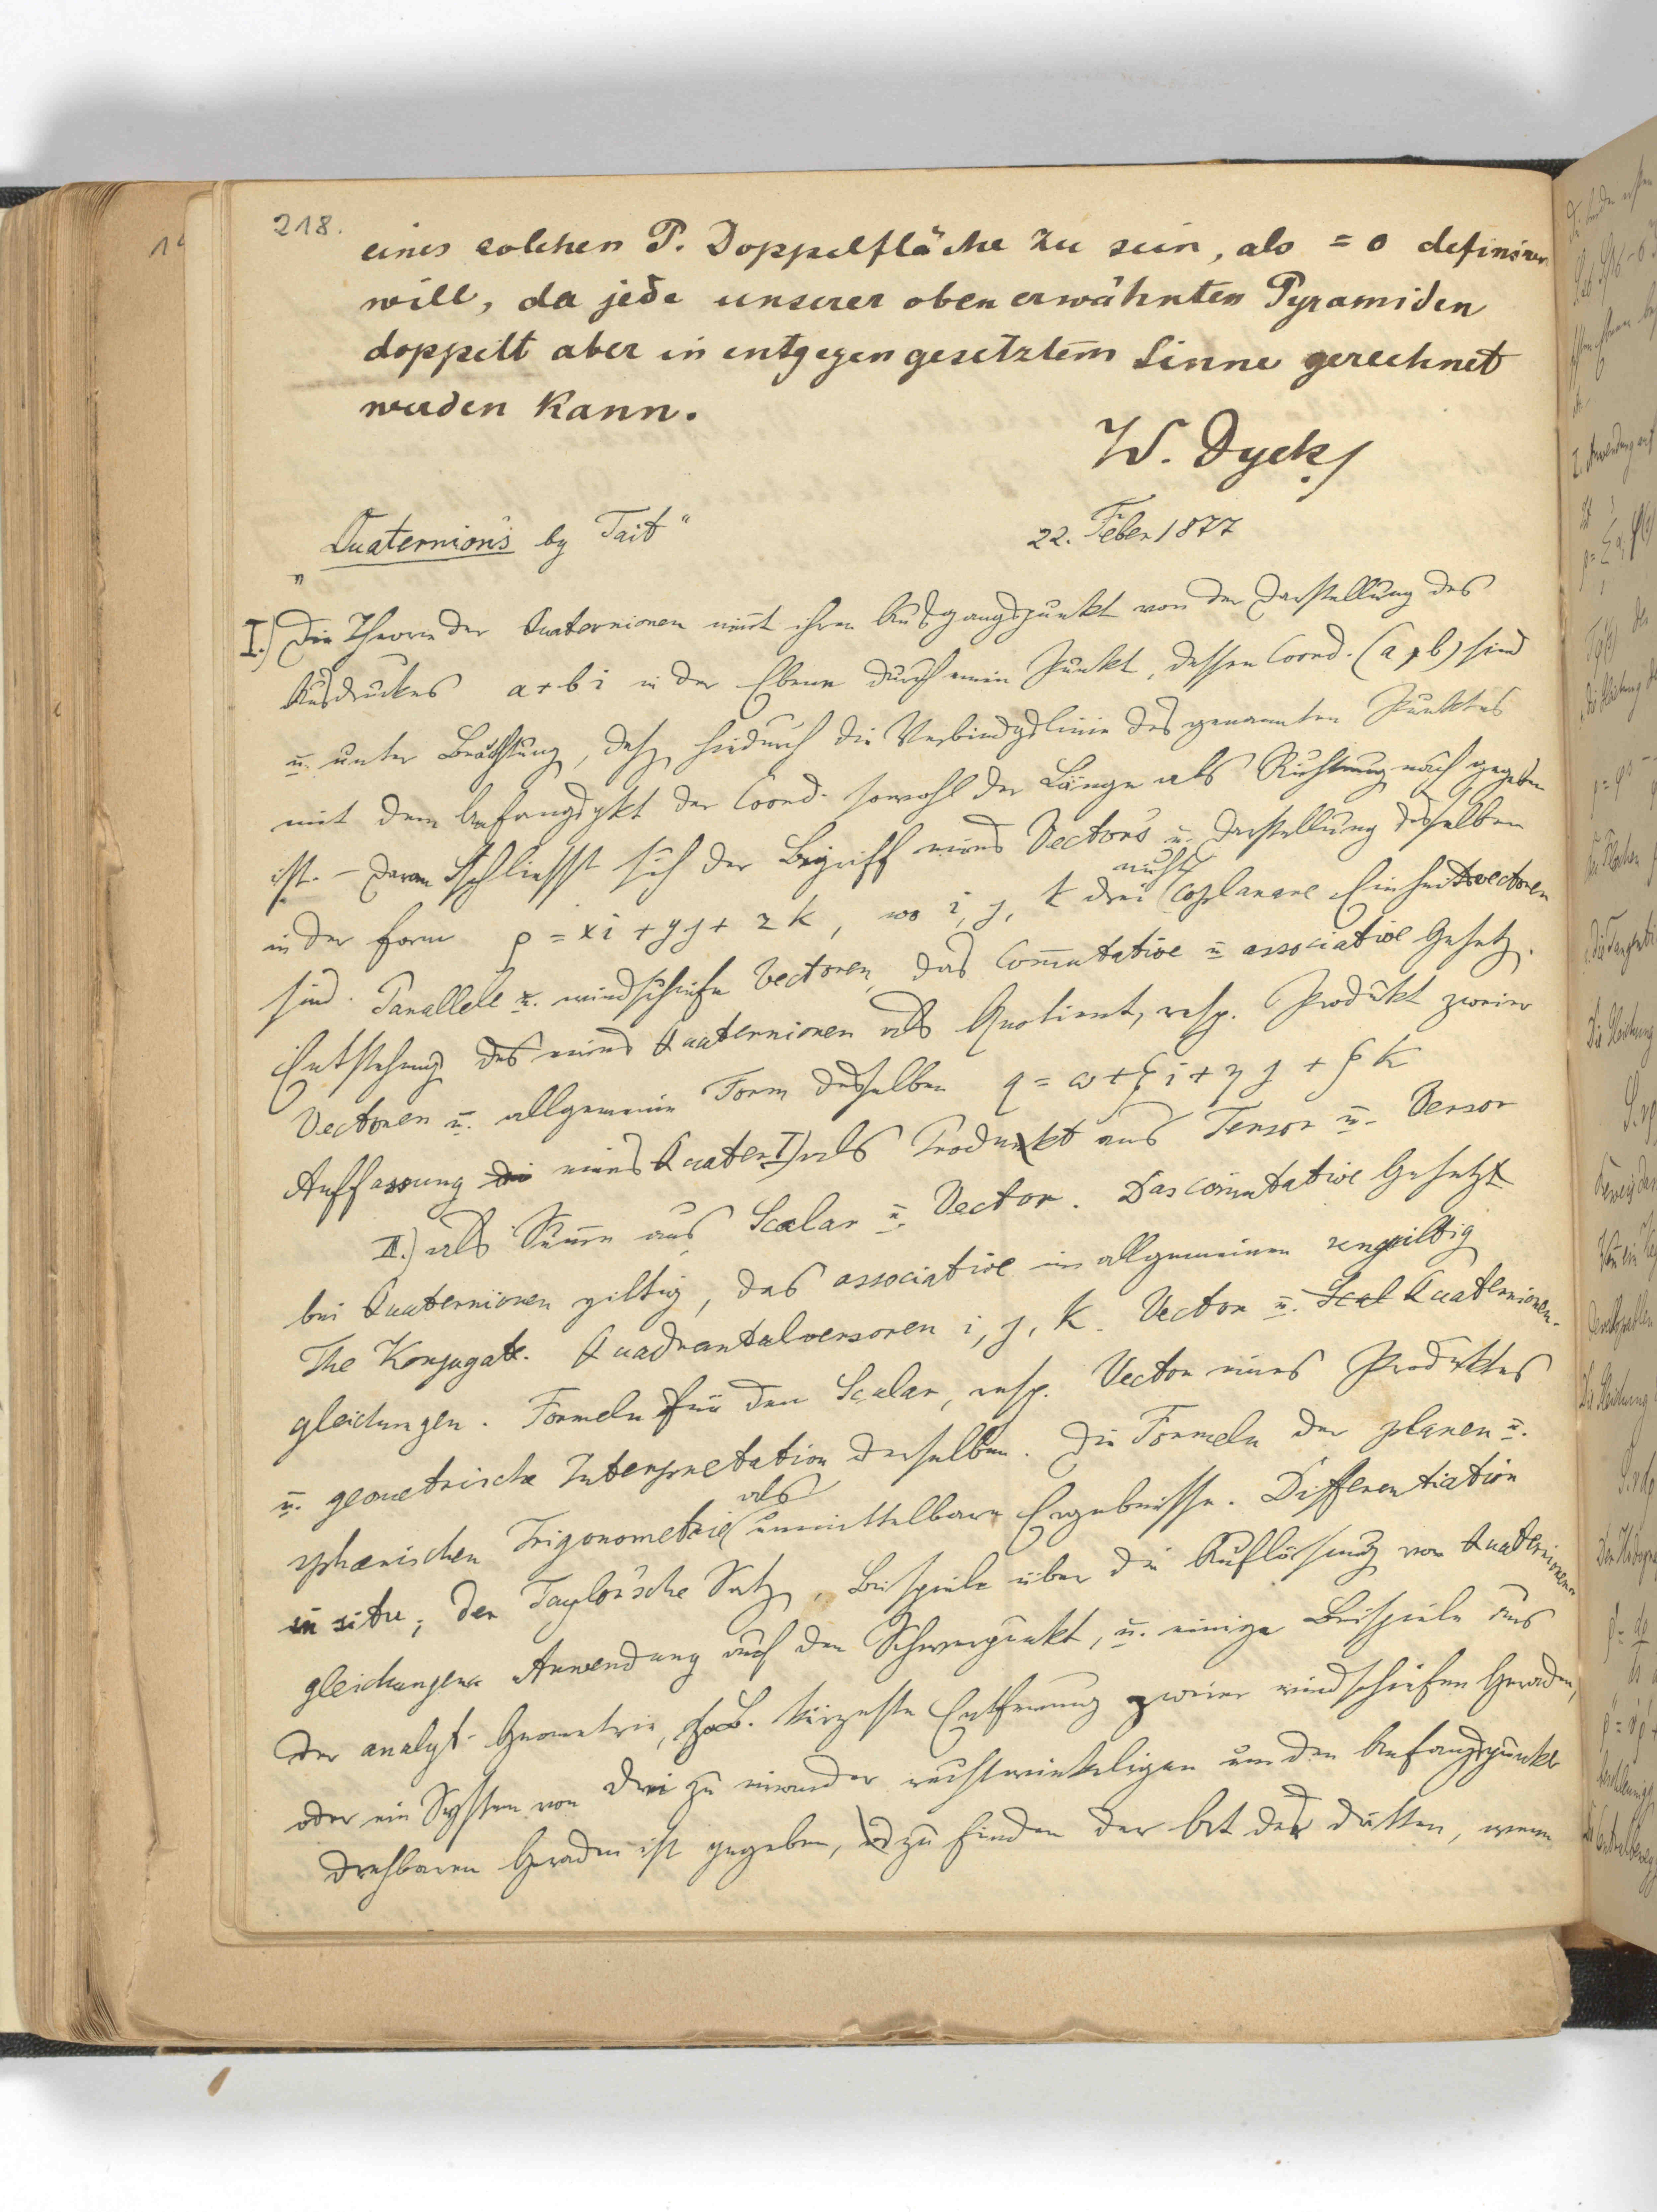 218.
eines solchen P. Doppelfläche zu sein, als = 0 definiren
will, da jede unserer oben erwähnten Pyramiden
doppelt aber in entgegengesetztem Sinne gerechnet
werden kann.
W. Dyck
„Quaternion's by Tait“ 22. Feber 1877
I.) Die Theorie der Quaternionen nimt ihren Ausgangspunkt von der Darstellung des
Ausdruckes a+bi in der Ebene durch einen Punkt, dessen Coord. (a, b) sind
u. unter Beachtung, daß hiedurch die Verbindgslinie des genannten Punktes
mit dem Anfangspkt der Coord. sowohl der Länge als Richtung nach gegeben
ist. – Daran schliesst sich der Begriff eines Vectors u. Darstellung desselben
in der Form ρ = xi + yj + zk, wo i, j, k drei nicht coplanare Einheitsvectoren
sind. Parallele u. windschiefe Vectoren, das Commutative u associative Gesetz.
Entstehung des eines Quaternionen als Quotient, resp. Produkt zweier
Vectoren u. allgemeine Form desselben q = ω + ξi + ηj + ζk
Auffassung die eines Quater I) als Produkt aus Tensor u. Versor
II.) als Summe aus Scalar u. Vector. Das comutative Gesetz
bei Quaternionen giltig, das associative im allgemeinen ungiltig
The Konjugate. Quadrantalversoren i, j, k. Vector u. Scal Quaternionen-
gleichungen. Formeln für den Scalar, resp. Vector eines Produktes
u. geometrische Interpretation derselben. Die Formeln der planen u.
sphærischen Trigonometrie als unmittelbare Ergebnisse. Differentiation
in situ; der Taylor'sche Satz, Beispiele über die Auflösung von Quaternionen
gleichungen Anwendung auf den Schwerpunkt, u. einige Beispiele aus
der analyt. Geometrie, z.B. kürzeste Entfernung zweier windschiefen Geraden,
oder ein System von drei zu einander rechtwinkeligen um den Anfangspunkt
drehbaren Geraden ist gegeben, zu finden der Ort der dritten, wenn